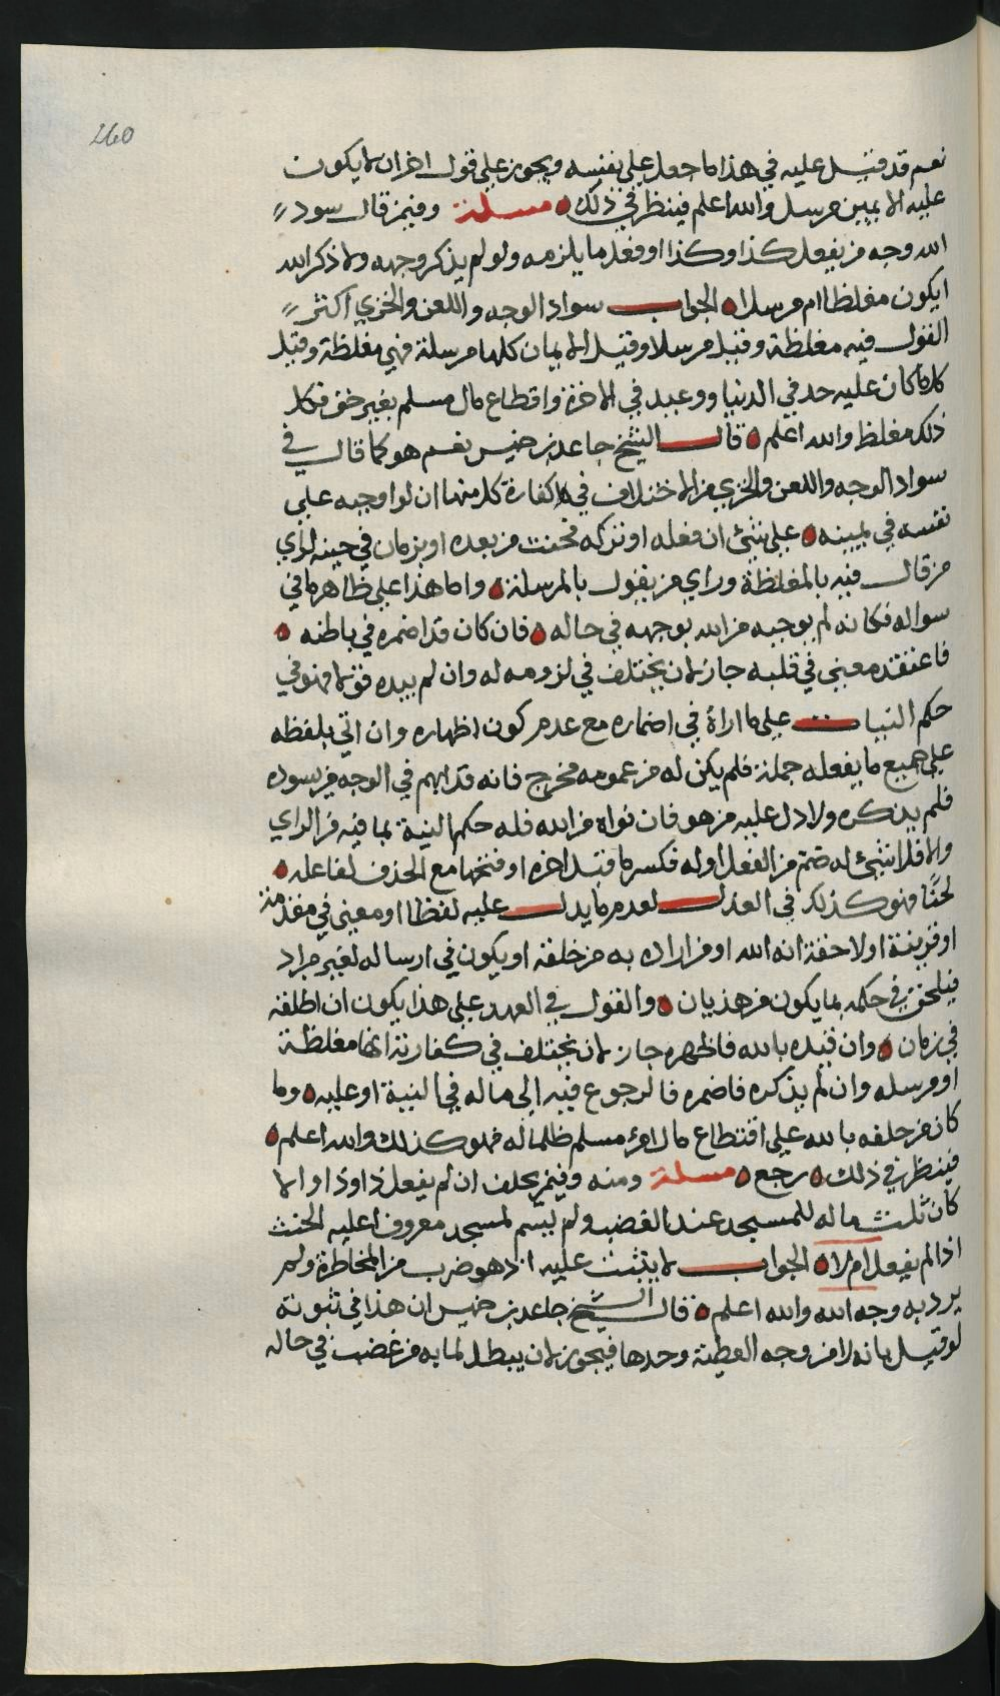 260
نعم قد قيل عليه في هذا ما جعل على نفسه ويجوز على قول اخر ان لا يكون
عليه الا يمين مرسل والله اعلم فينظر في ذلك مسئلة وفيمن قال سود
الله وجه من يفعل كذا وكذا او فعل ما يلزمه ولو لم يذكر وجهه ولا ذكر الله
ايكون مغلظا ام مرسلا الجواب سواد الوجه واللعن والخزي اكثر
القول فيه مغلظة وقيل مرسلا وقيل الايمان كلها مرسلة فهي مغلظة وقيل
كلما كان عليه حد في الدنيا ووعيد في الاخرة واقطاع مال مسلم بغير حق فكل
ذلك مغلظ والله اعلم قال الشيخ جاعد بن خميس نعم هو كما قال في
سواد الوجه واللعن والخزي من الاختلاف في كفارة كل منها ان لو اوجبه على
نفسه في يمينه على شئ ان فعله او تركه فحنث من بعده او بزمان في حينه لراي
من قال فيه بالمغلظة وراي من يقول بالمرسلة واما هذا على ظاهر ما في
سواله فكانه لم يوجبه من الله بوجهه في حاله فان كان قد اضمره في باطنه
فاعتقده معنى في قلبه جاز لان يختلف في لزومه له وان لم يبده قولا فهو في
حكم النيات على ما اراه في اضماره مع عدم كون اظهاره وان اتى بلفظه
على جميع ما يفعله جملة فلم يكن له من عمومه مخرج فانه قد ابهم في الوجه من يسوده
فلم يذكره ولا دل عليه من هو فان نواه من الله فله حكم النية بما فيه من الراي
والا فلا شئ له ضم من الفعل اوله فكسر ما قبل اخره او فتحها مع الحذف لفاعله
لحنًا فهو كذلك في العدل لعدم ما يدل عليه لفظا او معنى في مقدمة
او قرينة او لاحقة انه الله او من اراده به من خلقه او يكون في ارساله لغير مراد
فيلحق في حكمه بما يكون من هذيان والقول في العهد على هذا يكون ان اطلقه
في زمان وان قيده بالله فاظهره جاز لان يختلف في كفارته انها مغلظة
او مرسله وان لم يذكره فاضمره فالرجوع فيه الى ماله في النية او عليه وما
كان من حلفه بالله على اقتطاع مال امرء مسلم ظلما له فهو كذلك والله اعلم
فينظر في ذلك رجع مسئلة ومنه وفيمن يحلف ان لم يفعل ذا وذا والا
كان ثلث ماله للمسجد عند الغضب ولم يسم لمسجد معروف اعليه الحنث
اذا لم يفعل ام لا الجواب لا يثبت عليه اذ هو ضرب من المخاطرة ولم
يرد به وجه الله والله اعلم قال الشيخ جاعد بن خميس ان هذا في ثبوته
لو قيل بانه لا من وجه العطية وحدها فيجوز لان يبطل لما به من غضب في حاله